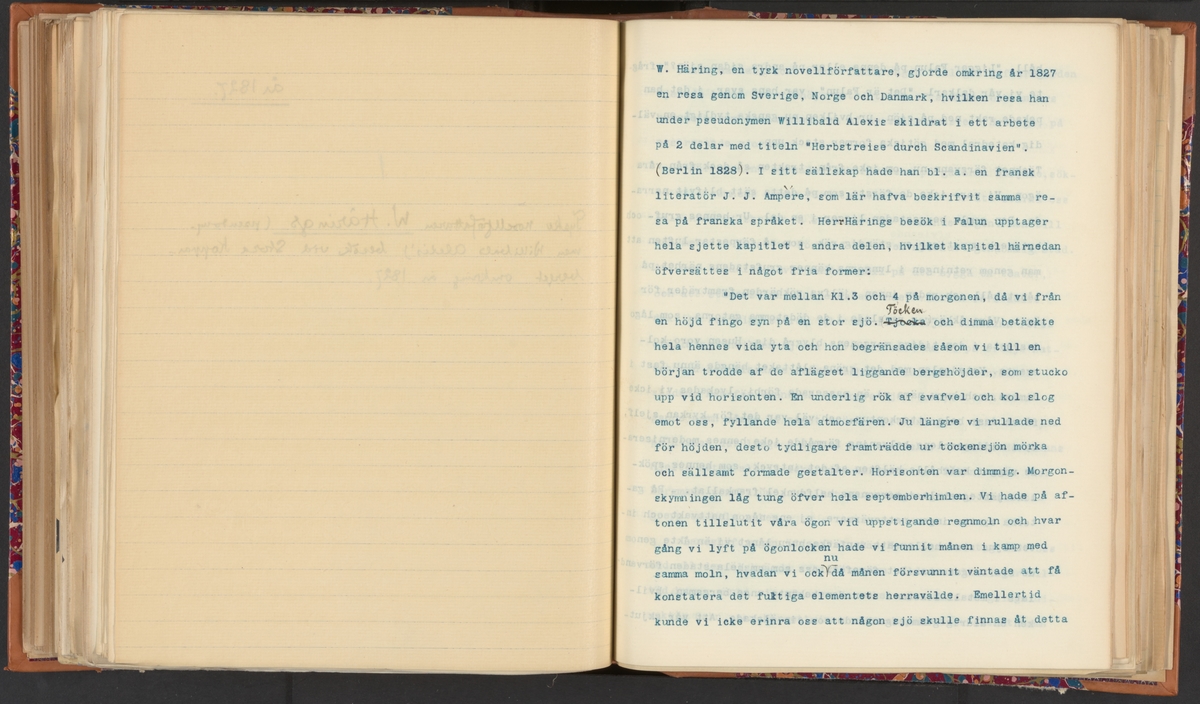 W. Häring, en tysk novellförfattare, gjorde omkring år 1827
en resa genom Sverige, Norge och Danmark, hvilken resa han
under pseudonymen Willibald Alexis skildrat i ett arbete
på 2 delar med titeln "Herbstreise durch Scandinavien".
(Berlin 1828). I sitt sällskap hade han bl. a. en fransk
literatör J. J. Ampère, som lär hafva beskrifvit samma re-
sa på franska språket. HerrHärings besök i Falun upptager
hela sjette kapitlet i andra delen, hvilket kapitel härnedan
öfversättes i något fria former:
"Det var mellan Kl.3 och 4 på morgonen, då vi från
Töcken
en höjd fingo syn på en stor sjö. Tjocka och dimma betäckte
hela hennes vida yta och hon begränsades såsom vi till en
början trodde af de aflägset liggande bergshöjder, som stucko
upp vid horisonten. En underlig rök af svafvel och kol slog
emot oss, fyllande hela atmosfären. Ju längre vi rullade ned
för höjden, desto tydligare framträdde ur töckensjön mörka
och sällsamt formade gestalter. Horisonten var dimmig. Morgon-
skymningen låg tung öfver hela septemberhimlen. Vi hade på af-
tonen tillslutit våra ögon vid uppstigande regnmoln och hvar
gång vi lyft på ögonlocken hade vi funnit månen i kamp med
nu
samma moln, hvadan vi ock då månen försvunnit väntade att få
konstatera det fuktiga elementets herravälde. Emellertid
kunde vi icke erinra oss att någon sjö skulle finnas åt detta